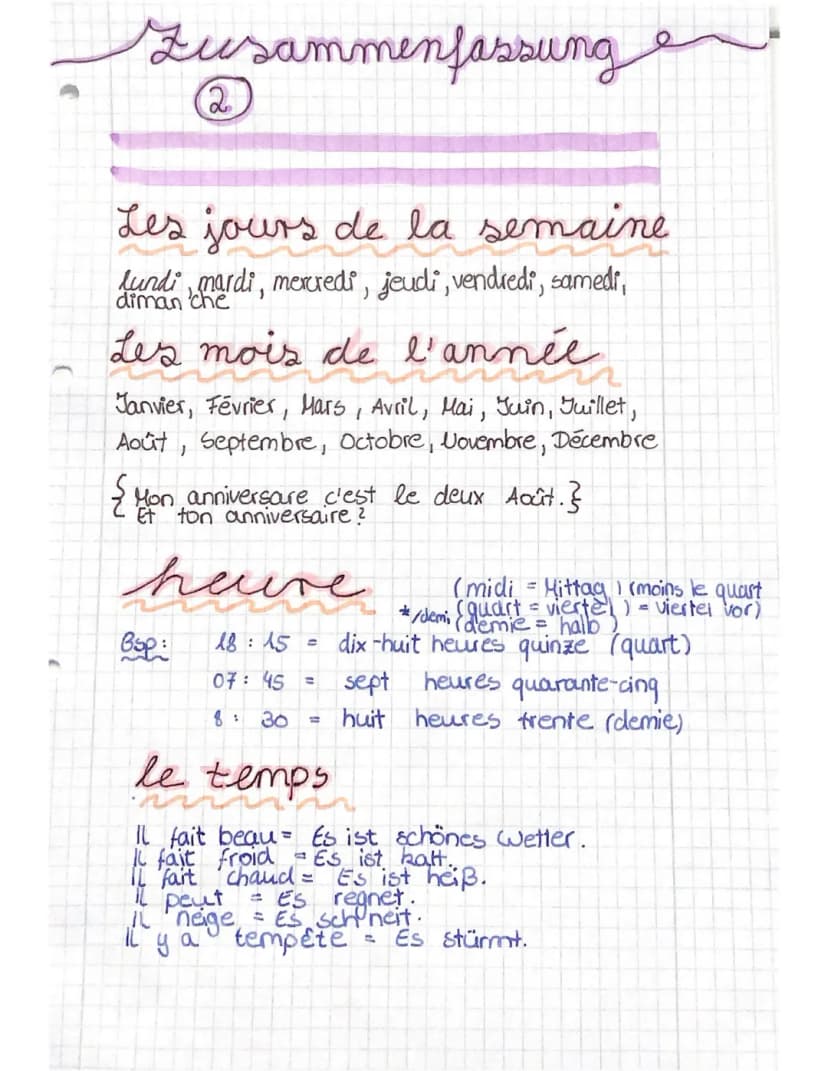 Zusammenfassung
2
Les jours de la semaine
lundi, mardi, mercredi, jeudi, vendredi, samedi,
dimanche
Les mois de l'année
Janvier, Février, Mars, Avril, Mai, Juin, Juillet,
Août, Septembre, Octobre, Novembre, Décembre
{ Mon anniversare c'est le deux Août. }
Et ton anniversaire?
heure
(midi = Mittag) (moins le quart
*/demi, (quart = viertel) = viertel vor)
(demie = halb)
Bsp: 18:15 = dix-huit heures quinze (quart)
07:45 = sept heures quarante-cinq
8:30 = huit heures trente (demie)
le temps
Il fait beau = Es ist schönes Wetter.
Il fait froid = Es ist kalt.
Il fait chaud = Es ist heiß.
Il peut = Es regnet.
Il neige = Es schneit.
Il y a tempête = Es stürmt.